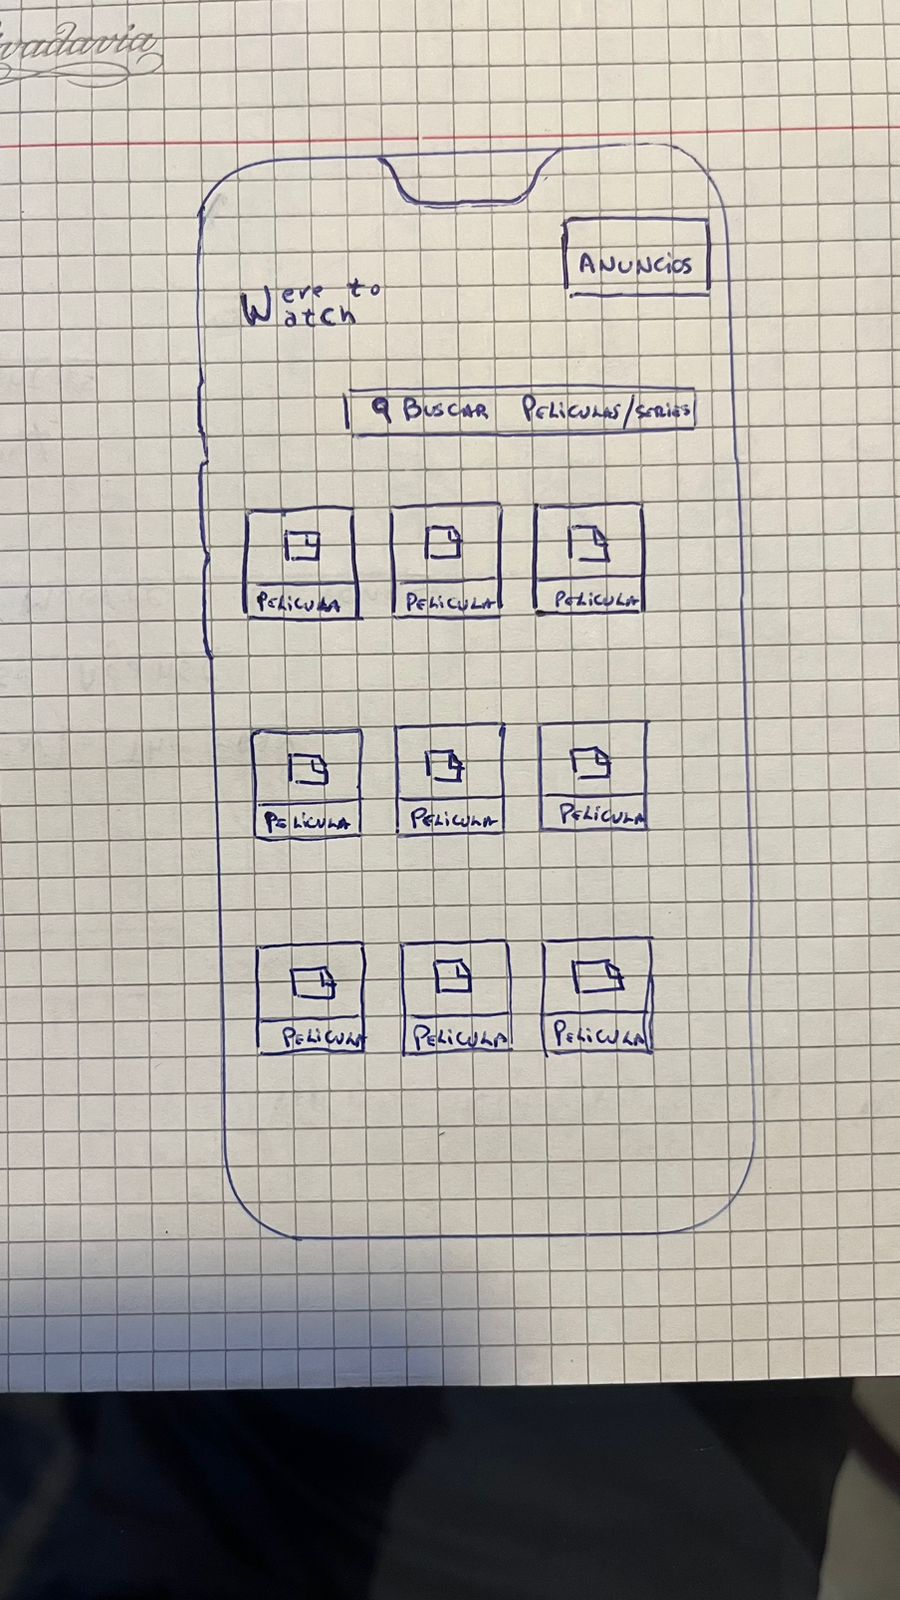 vadavia
ANUNCIOS
Were to
Watch
BUSCAR PELICULAS/SERIES
PELICULA PELICULA PELICULA
PELICULA PELICULA PELICULA
PELICULA PELICULA PELICULA